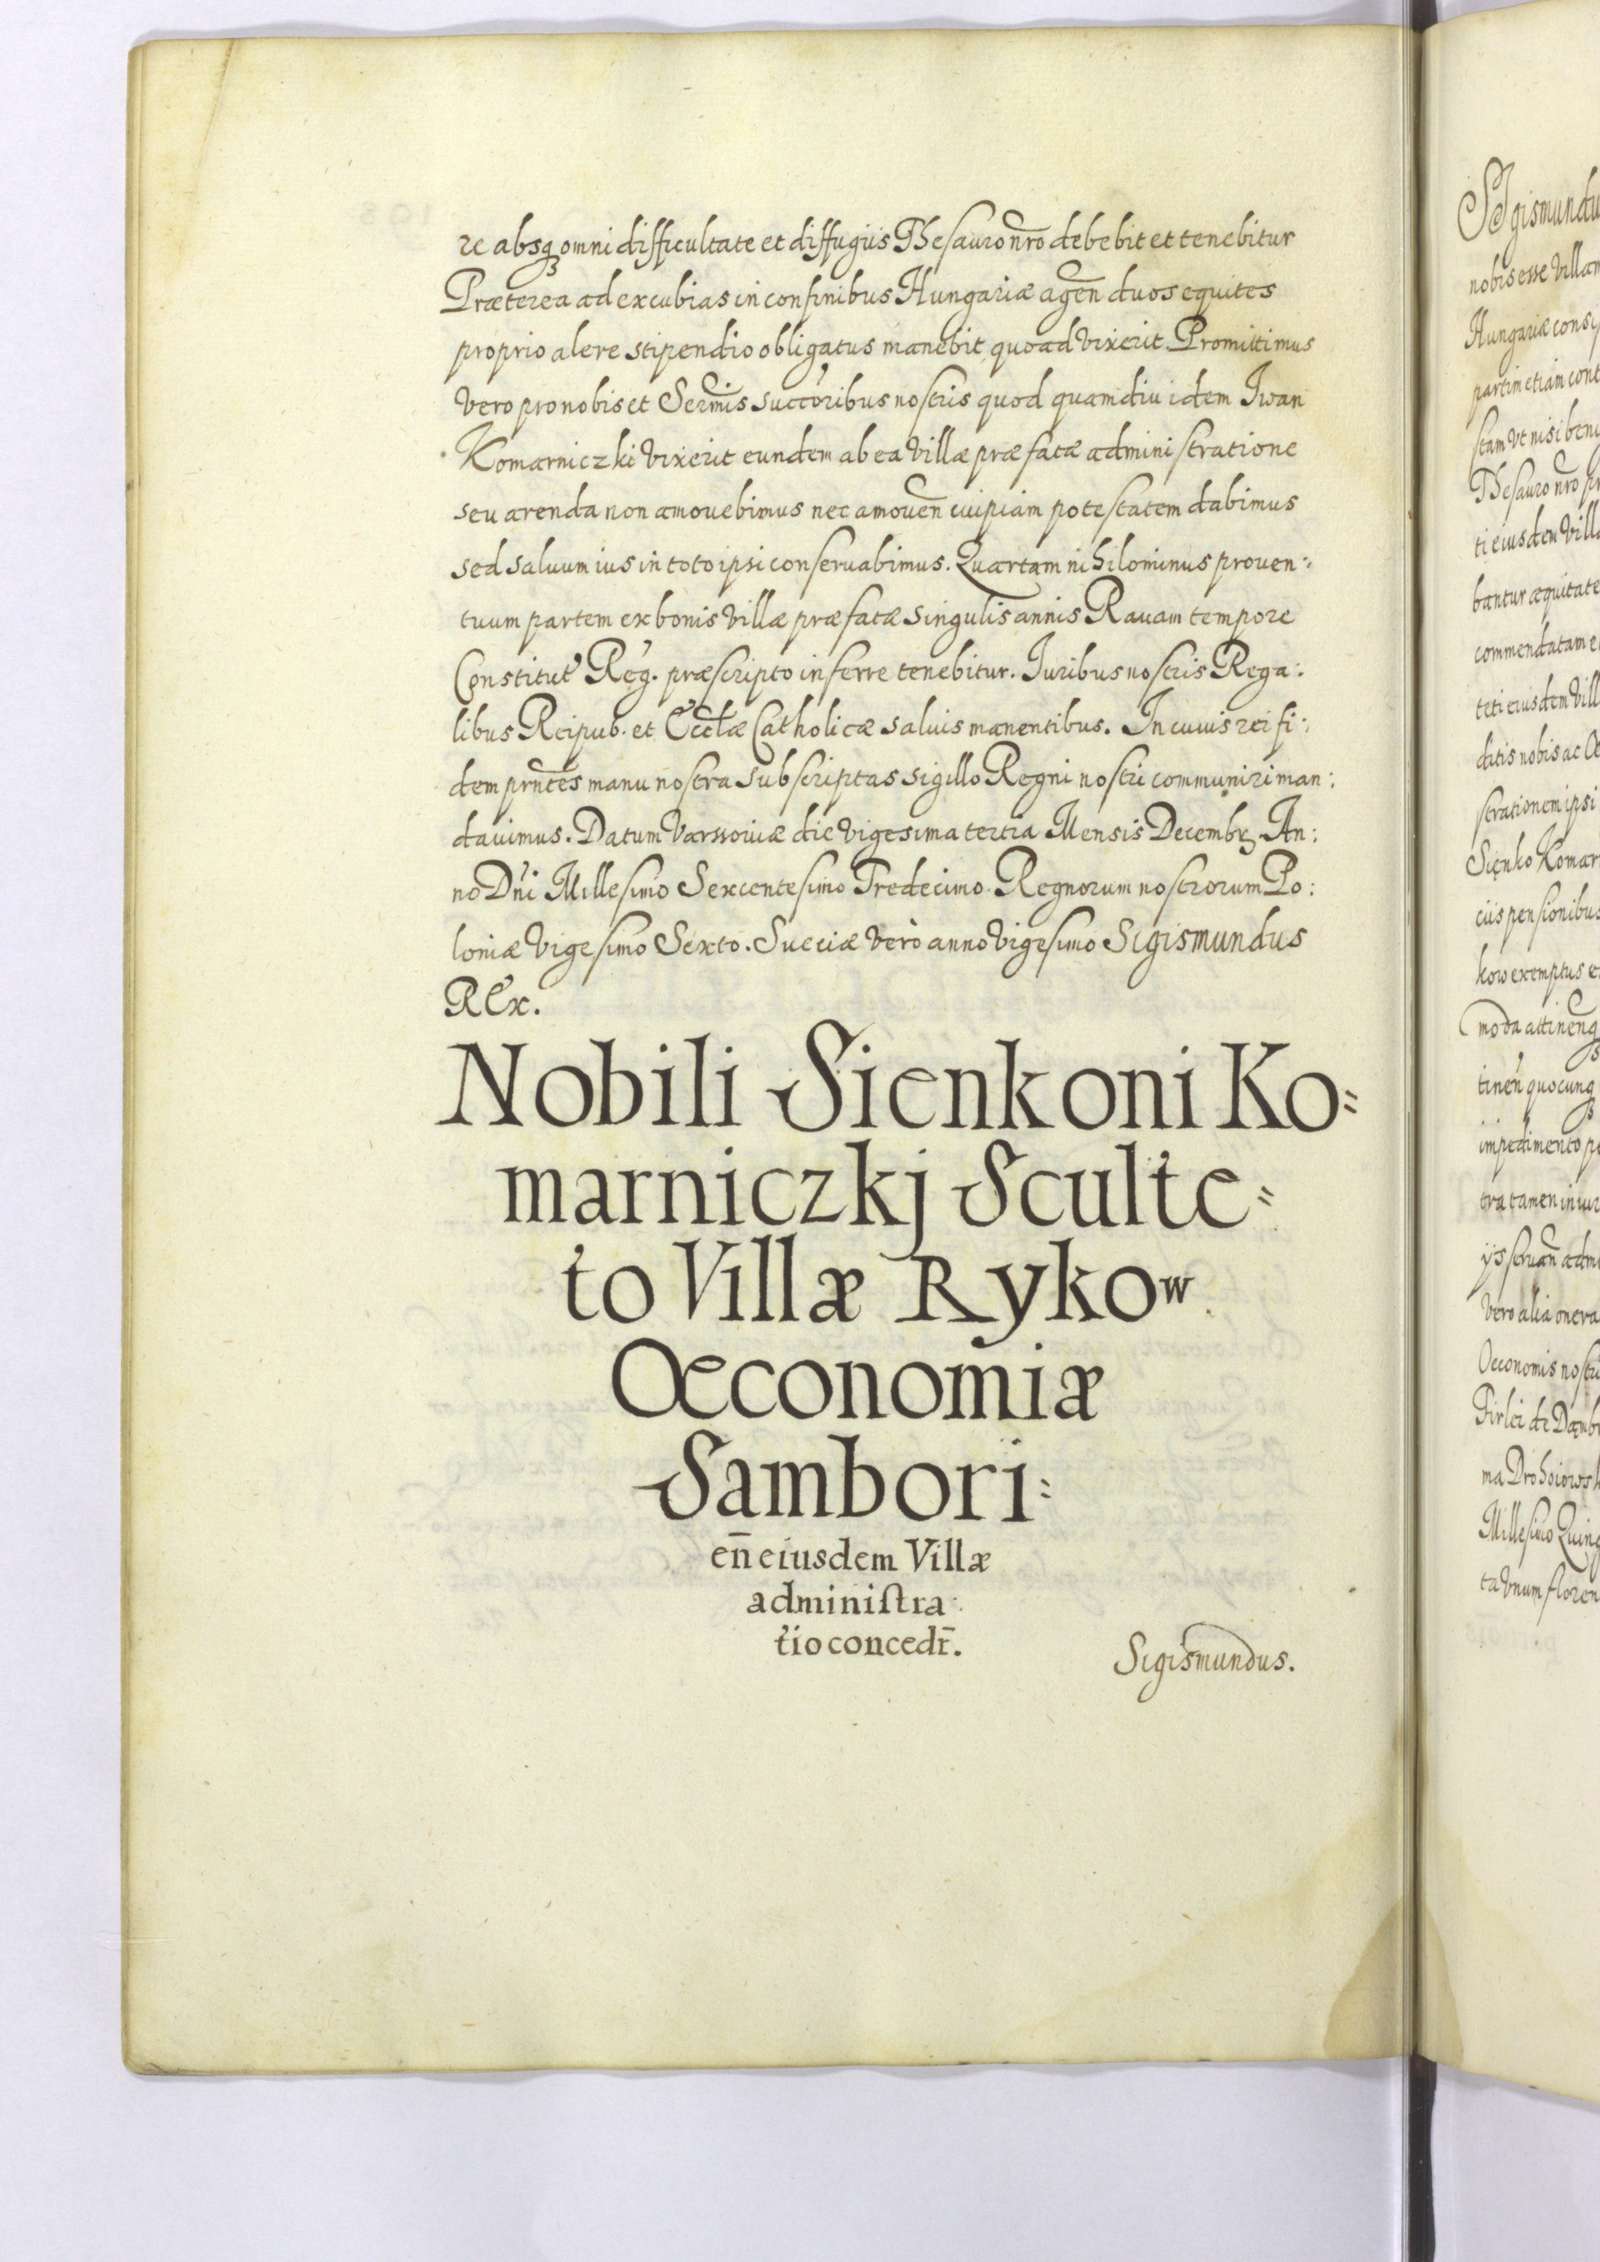 re absqꝫ omni difficultate et diffugiis Thesauro nr̃o debebit et tenebitur
Præterea ad excubias in confinibus Hungariæ agen̄ duos equites
proprio alere stipendio obligatus manebit quoad vixerit Promittimus
vero pro nobis et Serm̄is succ̄oribus nostris quod quamdiu idem Iwan
Komarniczki vixerit eundem ab ea villæ præfatæ administratione
seu arenda non amovebimus nec amoven̄ cuipiam potestatem dabimus
sed salvum ius in toto ipsi conservabimus. Quartam nihilominus proven:
tuum partem ex bonis villæ præfatæ singulis annis Ravam tempore
Constitut Reg. præscripto inferre tenebitur. Iuribus nostris Rega:
libus Reipub. et Eccl̄æ Catholicæ salvis manentibus. In cuius rei fi:
dem prn̄tes manu nostra subscriptas sigillo Regni nostri communiri man:
davimus. Datum Varssoviæ die vigesima tertia Mensis Decembꝝ An:
no Dn̄i Millesimo Sexcentesimo Tredecimo. Regnorum nostrorum Po:
loniæ Vigesimo Sexto. Sueciæ verò anno vigesimo Sigismundus
REx.
Nobili Sienkoni Ko=
marniczkj Sculte=
to Villæ Rykow
Œconomiæ
Sambori=
en̄ eiusdem Villæ
administra:
tio concedr̄.
Sigismundus.
Sigismundu
nobis esse villam
Hungariæ consy
partim etiam cont
stam vt nisi beni
Thesauro nr̃o pr
ti eiusdem villæ
bantur æquitate
commendatam e
teti eiusdem vill
ditis nobis ac Oe
strationem ipsi
Sięnko Komar
ciis pensionibus
kow exemptus e
moda attinen̄
tinen̄ quocunqꝫ
impedimento p
tra tamen in iur
ys servan̄ adm
vero alia onera
Oeconomis nostr
Firlei de Dambr
ma Drohoiowsk
Millesimo Quing
ta vnum floren